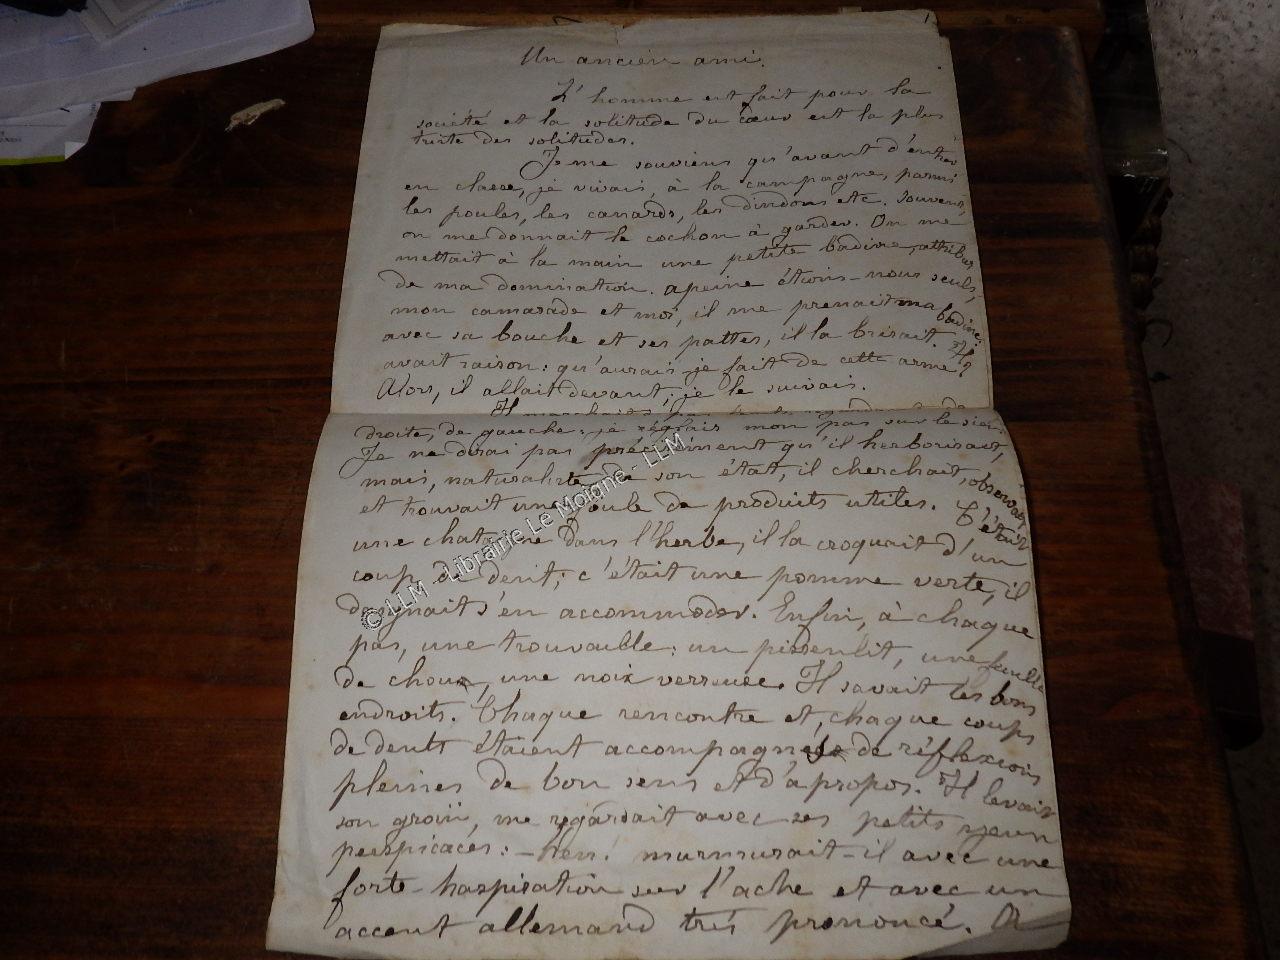 Un ancien ami.
L'homme est fait pour la
société et la solitude du cœur est la plus
triste des solitudes.
Je me souviens qu'avant d'entrer
en classe, je vivais, à la campagne, parmi
les poules, les canards, les dindons etc. Souvent,
on me donnait le cochon à garder. On me
mettait à la main une petite badine, attribut
de ma domination. apeine étions-nous seuls,
mon camarade et moi, il me prenait ma badine:
avec sa bouche et ses pattes, il la brisait. Il
avait raison: qu'aurais-je fait de cette arme?
Alors, il allait devant; je le suivais.
Il marchait
droite, de gauche: je réglais mon pas sur le sien.
Je ne dirai pas précisément qu'il herborisait,
mais, naturaliste de son état, il cherchait, observait
et trouvait une foule de produits utiles. C'était
une chataigne dans l'herbe, il la croquait d'un
coup de dent; c'était une pomme verte, il
daignait s'en accommoder. Enfin, à chaque
pas, une trouvaille: un pissenlit, une feuille
de choux, une noix verreuse. Il savait les bons
endroits. Chaque rencontre et, chaque coups
de dents étaient accompagnés de réflexions
pleines de bon sens et d'apropos. Il levait
son groin, me regardait avec ses petits yeux
perspicaces: – hen! murmurait-il avec une
forte haspiration sur l'ache et avec un
accent allemand très prononcé.
© LLM - Librairie Le Moigne - LLM